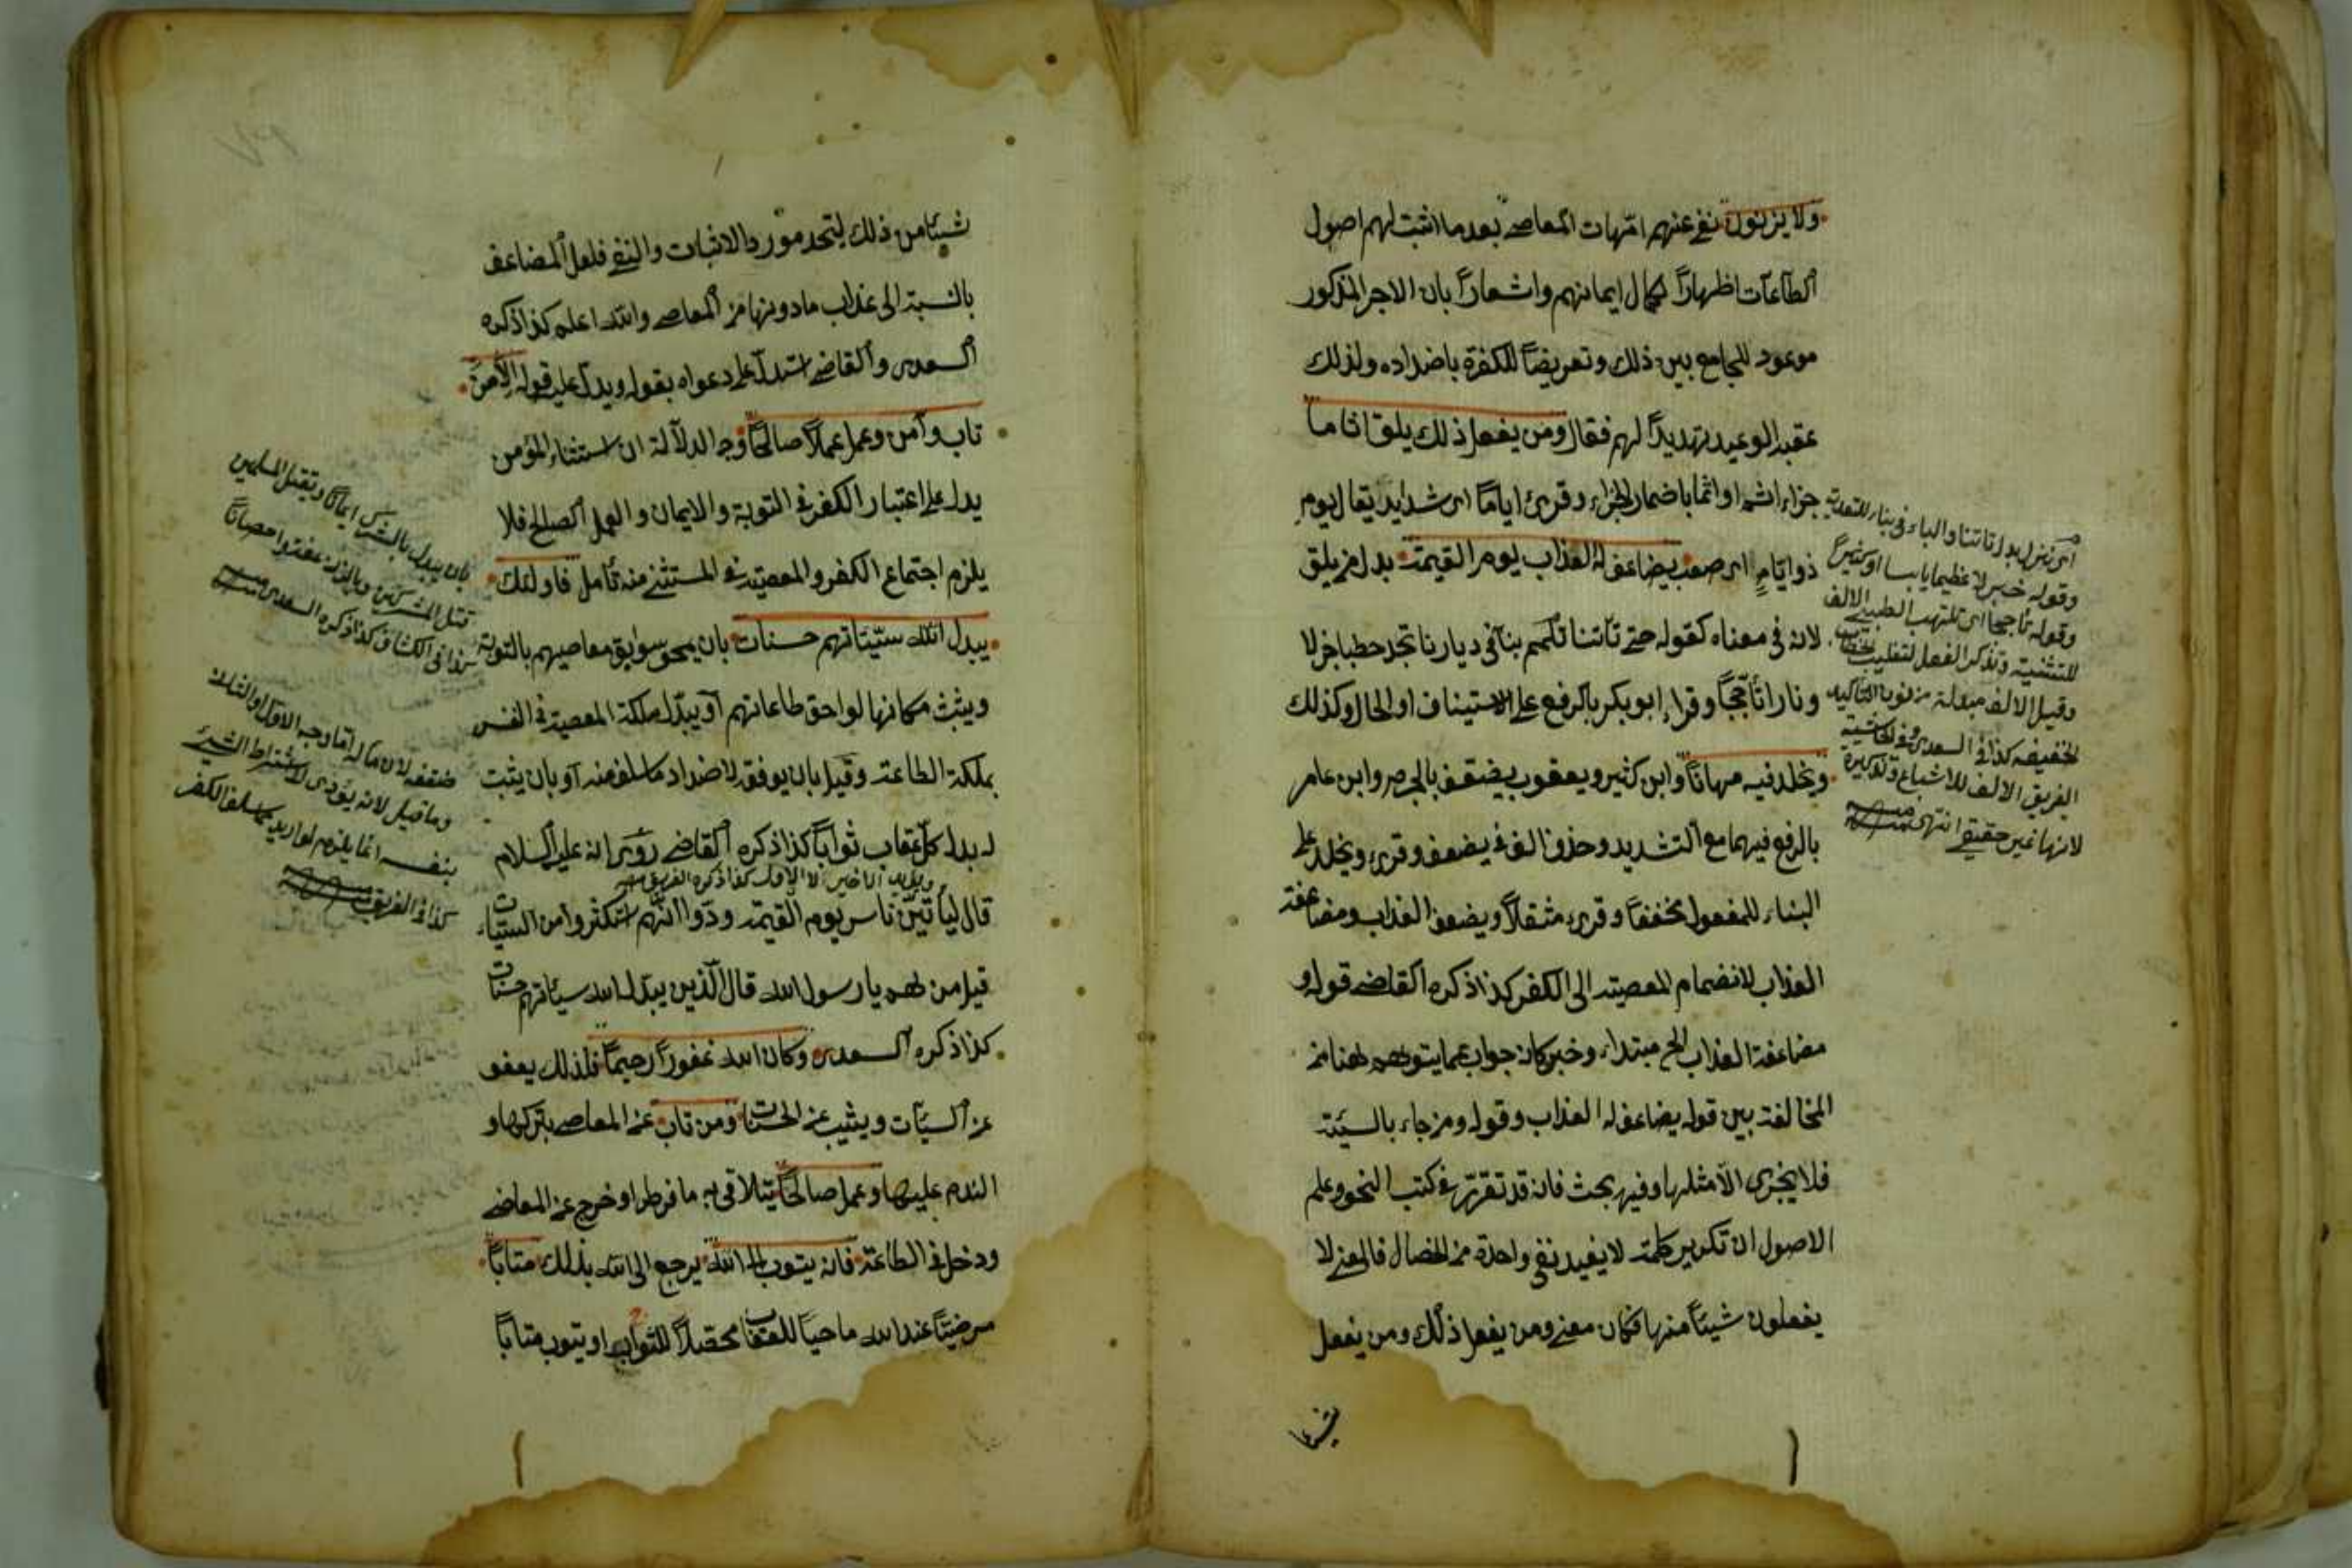 ولا يزنون نفى عنهم امّهات المعاصى بعدما اثبت لهم اصول
الطاعات اظهاراً لكمال ايمانهم واشعاراً بان الاجر المذكور
موعود للجامع بين ذلك وتعريضاً للكفرة باضداده ولذلك
عقبه الوعيد تهديداً لهم فقال ومن يفعل ذلك يلق اثاماً
جزاء اثم او اثما باضمار الجزاء وقرئ اياماً اى شدايد يقال يوم
ذو ايّامٍ اى صعب يضاعف له العذاب يوم القيمة بدل من يلق
لانه فى معناه كقوله حتى تأتنا تلمم بنا فى ديارنا تجد حطبا جزلا
ونارا تأجّجاً وقرأ ابو بكر بالرفع على الاستيناف او الحال وكذلك
ويخلد فيه مهاناً وابن كثير ويعقوب يضعّف بالجزم وابن عامر
بالرفع فيهما مع التشديد وحذف الف فى يضعف وقرئ ويخلد على
البناء للمفعول مخففاً وقرئ مثقلاً ويضعف العذاب ومضاعفة
العذاب لانضمام المعصية الى الكفر كذا ذكره القاضى قوله و
مضاعفة العذاب الخ مبتداء وخبر كانه جواب عما يتوهم ههنا من
المخالفة بين قوله يضاعف له العذاب وقوله ومن جاء بالسيئة
فلا يجزى الا مثلها وفيه بحث فانه قد تقرّر فى كتب النحو وعلم
الاصول ان تكرير كلمة لا يفيد نفى واحدة من الخصال فالمعنى لا
يفعلون شيئاً منها فكان معنى ومن يفعل ذلك ومن يفعل
شيئا
اى تنزل بدل تاتنا والباء فى بنا للتعدية
وقوله خبر لا عظيما يابسا او كثيراً
وقوله تأججا اى تلتهب الطيبى الالف
للتثنية وتذكر الفعل لتغليب
وقيل الالف مبدلة من نون التاكيد
الخفيفة كذا فى السعدى وفى الحاشية
الفريق الالف للاشباع وتذكيره
لانها غير حقيقى انتهى
شيئا من ذلك ليتحد مورد الاثبات والنفى فلعل المضاعف
بالنسبة الى عذاب ما دونها من المعاصى والله اعلم كذا ذكره
السعدى والقاضى استدل على دعواه بقوله ويدل عليه قوله الا من
تاب وآمن وعمل عملاً صالحاً وجه الدلالة ان استثناء المؤمن
يدل على اعتبار الكفر فى التوبة والايمان والعمل الصالح فلا
يلزم اجتماع الكفر والمعصية فى المستثنى منه تأمل فاولئك
يبدل الله سيّئاتهم حسنات بان يمحو سوابق معاصيهم بالتوبة
ويثبت مكانها لواحق طاعاتهم او يبدّل ملكة المعصية فى النفس
بملكة الطاعة وقيل بان يوفقه لاضداد ما سلف منه او بان يثبت
له بدل كلّ عقاب ثواباً كذا ذكره القاضى روى انه عليه السلام
ويؤيد الاخير لا الاول كذا ذكره الفريق
قال ليأتينّ ناس يوم القيمة ودّوا انّهم استكثروا من السيّئات
قيل من هم يا رسول الله قال الّذين يبدّل الله سيئاتهم حسنات
كذا ذكره السعدى وكان الله غفوراً رحيماً فلذلك يعفو
عن السيّئات ويثيب عن الحسنات ومن تاب عن المعاصى بتركها و
الندم عليها وعمل صالحاً يتلافى به ما فرط او خرج عن المعاصى
ودخل فى الطاعة فانه يتوب الى الله يرجع الى الله بذلك متاباً
مرضيّاً عند الله ماحياً للعقاب محصّلاً للثواب او يتوب متاباً
بان يبدل بالشرك ايمانا وبقتل المسلمين
قتل المشركين وبالزنا عفة واحصاناً
كذا فى الكشاف كذا ذكره السعدى
ضعفه لان مآله اما وجه الاول والثالث
وما قيل لانه يؤدى لاشتراط الشيئ
بنفسه انما يلزم لو اريد بما سلف الكفر
كذا فى الفريق